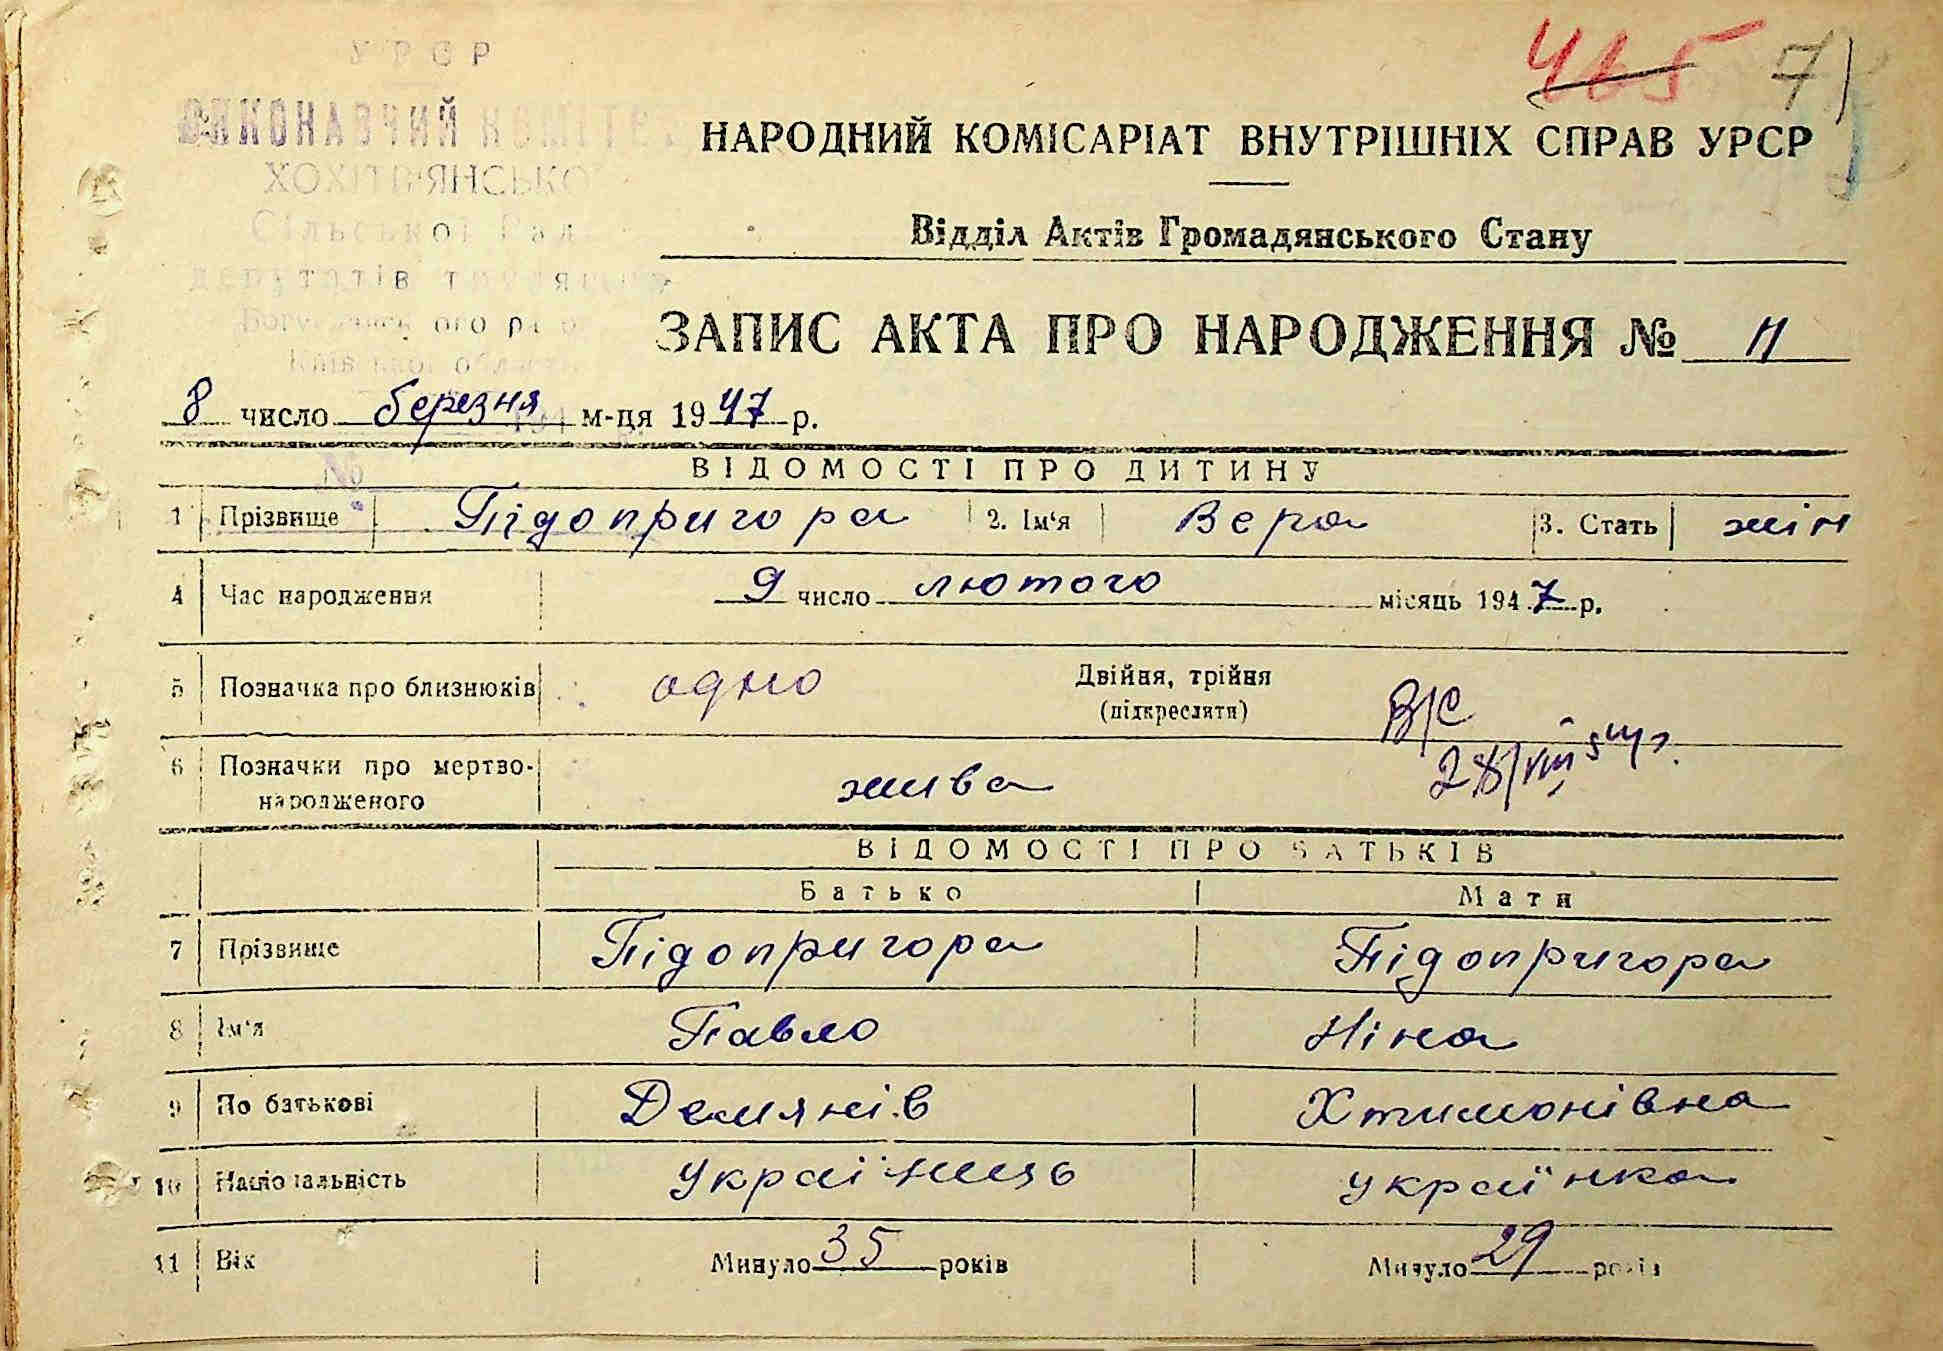 УРСР
ВИКОНАВЧИЙ КОМІТЕТ
465 71
ХОХІТВЯНСЬКО
НАРОДНИЙ КОМІСАРІАТ ВНУТРІШНІХ СПРАВ УРСР
Сільської Рад
Відділ Актів Громадянського Стану
депутатів трудящих
ого
ЗАПИС АКТА ПРО НАРОДЖЕННЯ № 11
Київської області
8 число березня м-ця 1947 р.
№
ВІДОМОСТІ ПРО ДИТИНУ
1 Прізвище Підопригора 2. Ім'я Вера 3. Стать жін
4 Час народження 9 число лютого місяць 1947 р.
5 Позначка про близнюків одно Двійня, трійня
(підкреслити)
В/С
6 Позначки про мертво-
народженого жива
ВІДОМОСТІ ПРО БАТЬКІВ
Батько Мати
7 Прізвище Підопригора Підопригора
8 Ім'я Павло Ніна
9 По батькові Демянів Хтимонівна
10 Національність Українць українка
11 Вік Минуло 35 років Минуло 29 років